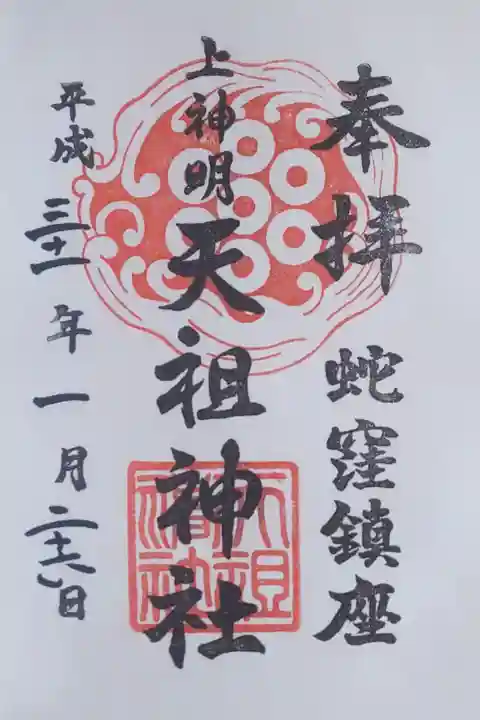 奉拝
蛇窪鎮座
上神明
天祖神社
平成三十一年一月二十六日